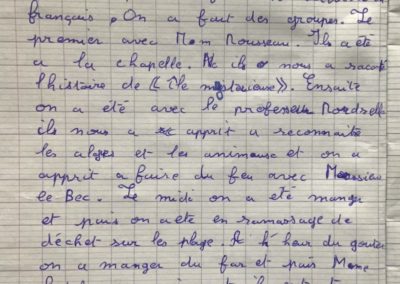 français, On a fait des groupes. Le
premier avec Mom Rousseau. Ils a été
a la chapelle. ils nous a racoté
l'histoire de «l'île mystérieuse». Ensuite
on a été avec le professeur
ils nous a apprit a reconnaite
les alges et les animause et on a
apprit a faire du feu avec Monssieu
le Bec. Le midi on a été manger
et puis on a ete en ramassage de
déchet sur les plage. A l'heur du gouter
on a manger du far et puis Mme